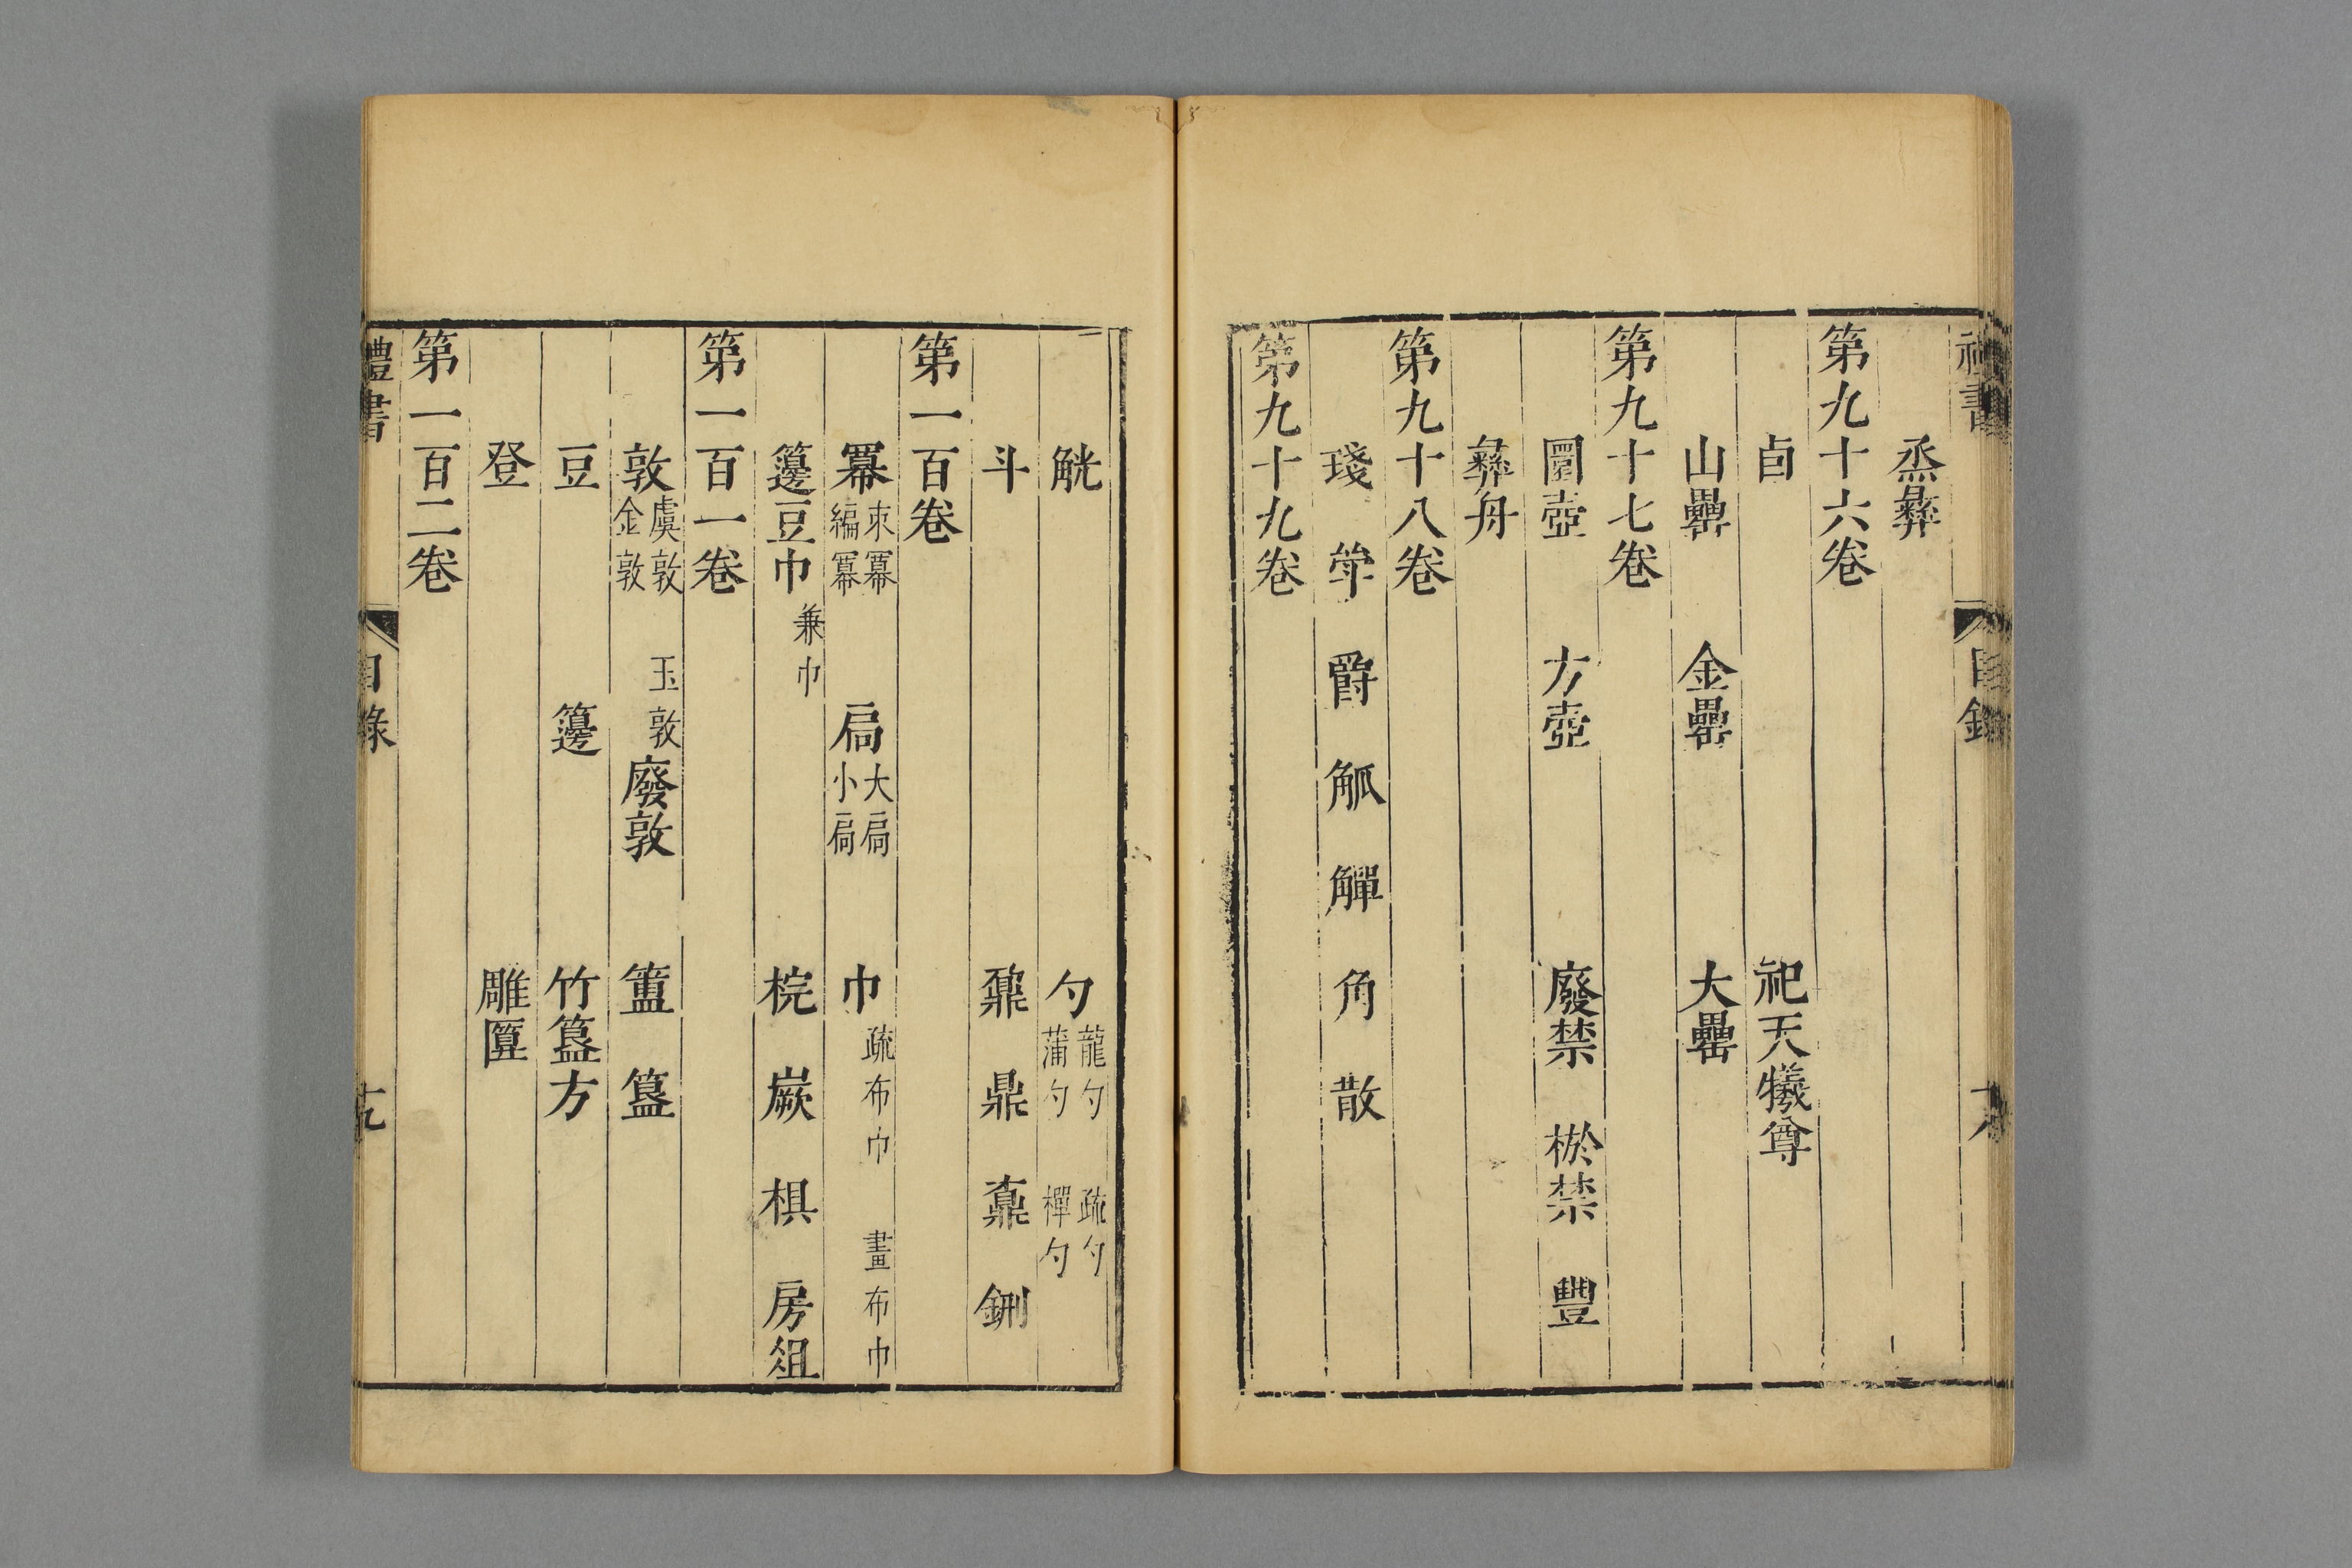 烝彝
第九十六卷
卣　祀天犧尊
山罍　金罍　大罍
第九十七卷
圜壺　方壺　廢禁　棜禁　豐
彝舟
第九十八卷
琖　斝　爵　觚　觶　角　散
第九十九卷
觥　勺 龍勺 蒲勺 疏勺 樿勺
斗　鼐　鼎　鼒　鉶
第一百卷
冪 朿冪 編冪　扃 大扃 小扃　巾 疏布巾 畫布巾
籩豆巾 兼巾　梡　嶡　棋　房俎
第一百一卷
敦 虞敦 金敦 玉敦　廢敦　簠　簋
豆　籩　竹簋方
登　雕匴
第一百二卷
禮書　目錄　十九